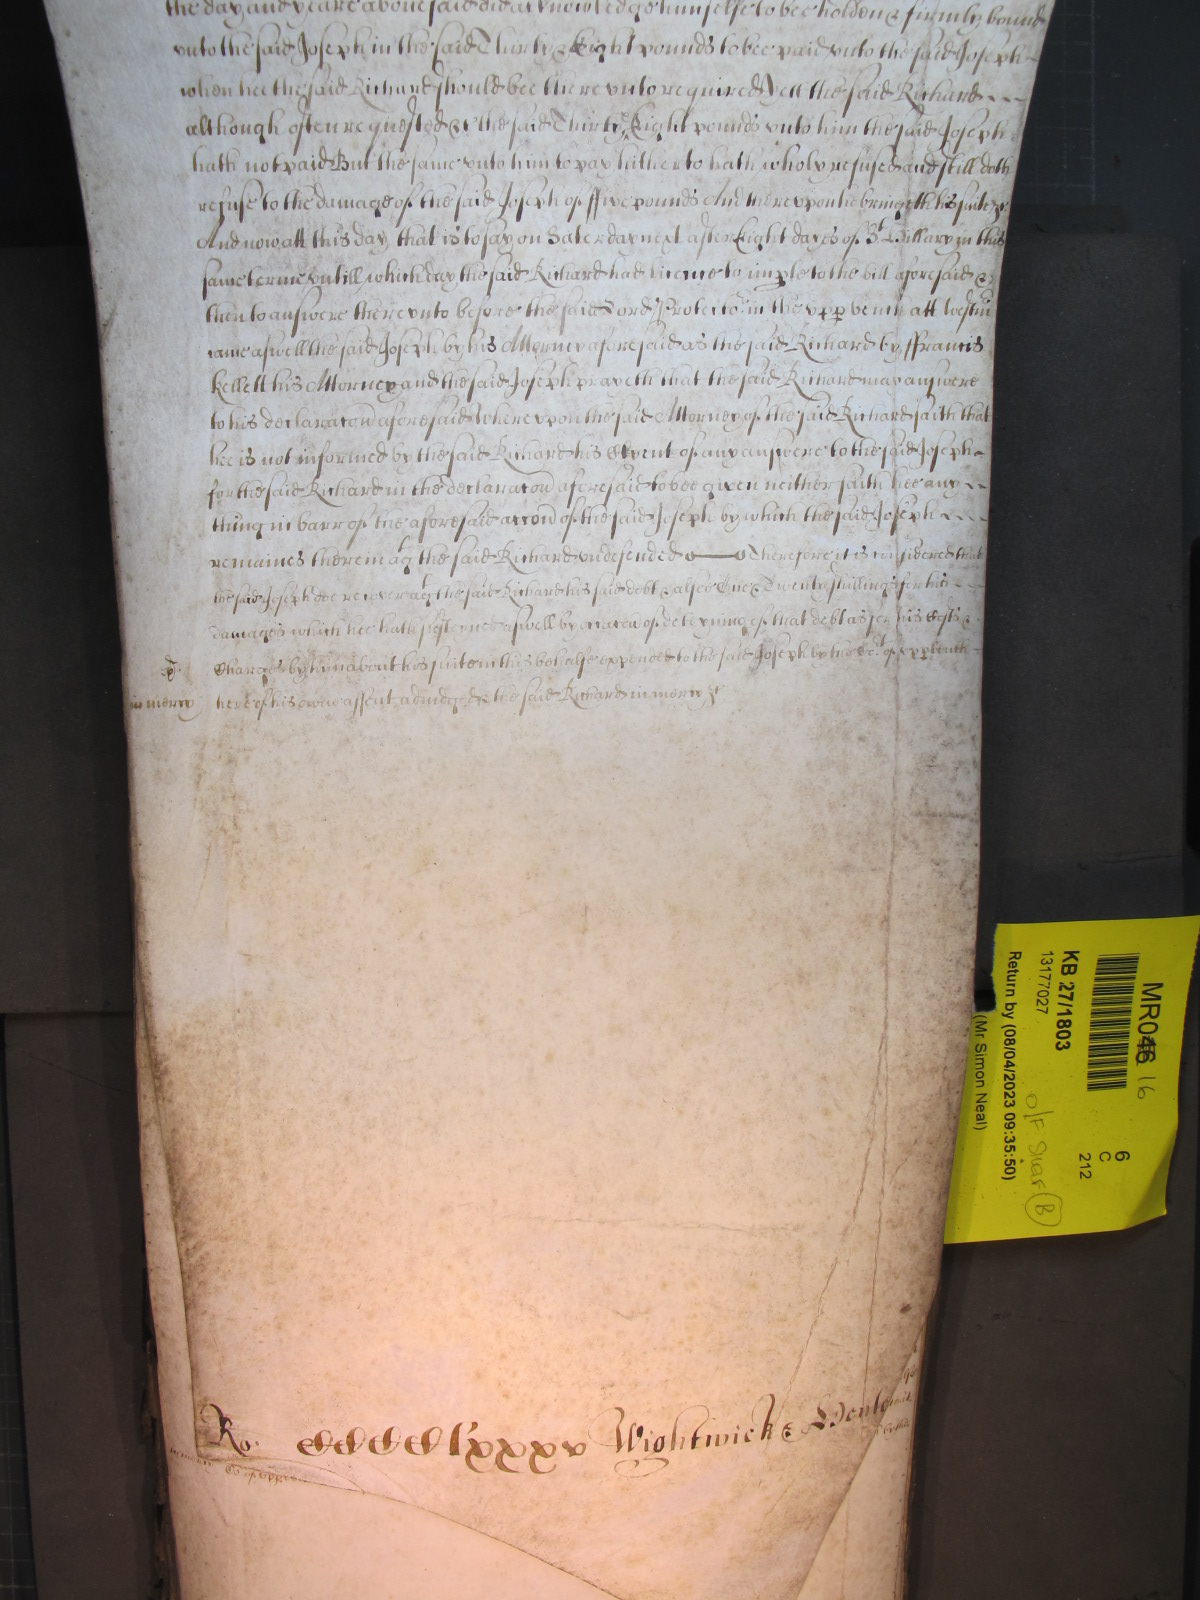 the day and yeare abovesaid did acknowledge himselfe to bee holden & firmly bound
unto the said Joseph in the said Thirty & Eight pounds to bee paid unto the said Joseph
when hee the said Richard should bee thereunto required Yett the said Richard
although often requested &c the said Thirty & Eight pounds unto him the said Joseph
hath not paid But the same unto him to pay hitherto hath wholy refused and still doth
refuse to the damage of the said Joseph of ffive pounds And thereupon he bringeth his suite &c
And now att this day that is to say on Saterday next after Eight dayes of St Hillary in this
same terme untill which day the said Richard had licence to imple to the bill aforesaid &
then to answere thereunto before the said Lord Protector in the upp bench att Westm
came aswell the said Joseph by his Attorney aforesaid as the said Richard by ffrancis
Kellett his Attorney and the said Joseph prayeth that the said Richard may answere
to his declaracon aforesaid Whereupon the said Attorney of the said Richard saith that
hee is not informed by the said Richard his Clyent of any answere to the said Joseph
for the said Richard in the declaracon aforesaid to bee given neither saith hee any
thing in barr of the aforesaid accon of the said Joseph by which the said Joseph
remaines therein agt the said Richard undefended Therefore it is considered that
the said Joseph doe recover agt the said Richard his said debt & alsoe One & Twenty shillings for his
damages which hee hath susteyned aswell by occacon of deteyning of that debt as for his Costs &
Charges by him about his suite in this behalfe expended to the said Joseph by the Cot of upp bench
here of his owne assent adiudged & the said Richard in mercy &c
in mercy
Ro. CCCClxxxv Wightwick &
MR046 16
KB 27/1803
13177027
Return by (08/04/2023 09:35:50)
(Mr Simon Neal)
O/F Shar B
6
C
212